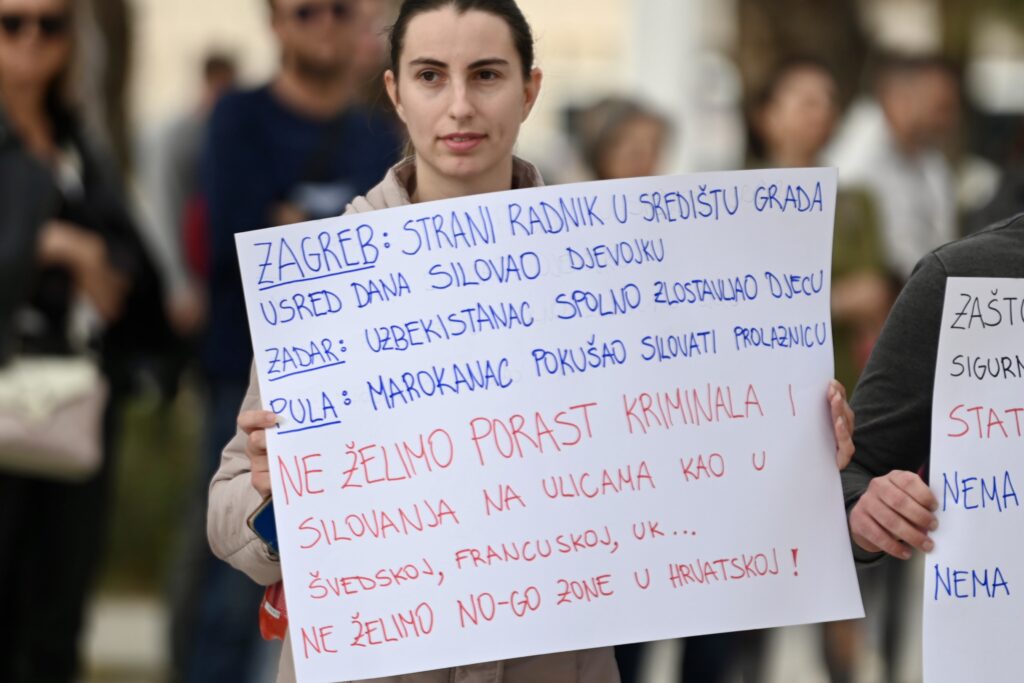 ZAGREB: STRANI RADNIK U SREDIŠTU GRADA
USRED DANA SILOVAO DJEVOJKU
ZADAR: UZBEKISTANAC SPOLNO ZLOSTAVLJAO DJECU
PULA: MAROKANAC POKUŠAO SILOVATI PROLAZNICU
NE ŽELIMO PORAST KRIMINALA I
SILOVANJA NA ULICAMA KAO U
ŠVEDSKOJ, FRANCUSKOJ, UK...
NE ŽELIMO NO-GO ZONE U HRVATSKOJ!
ZAŠTO
SIGURN
STAT
NEMA
NEMA